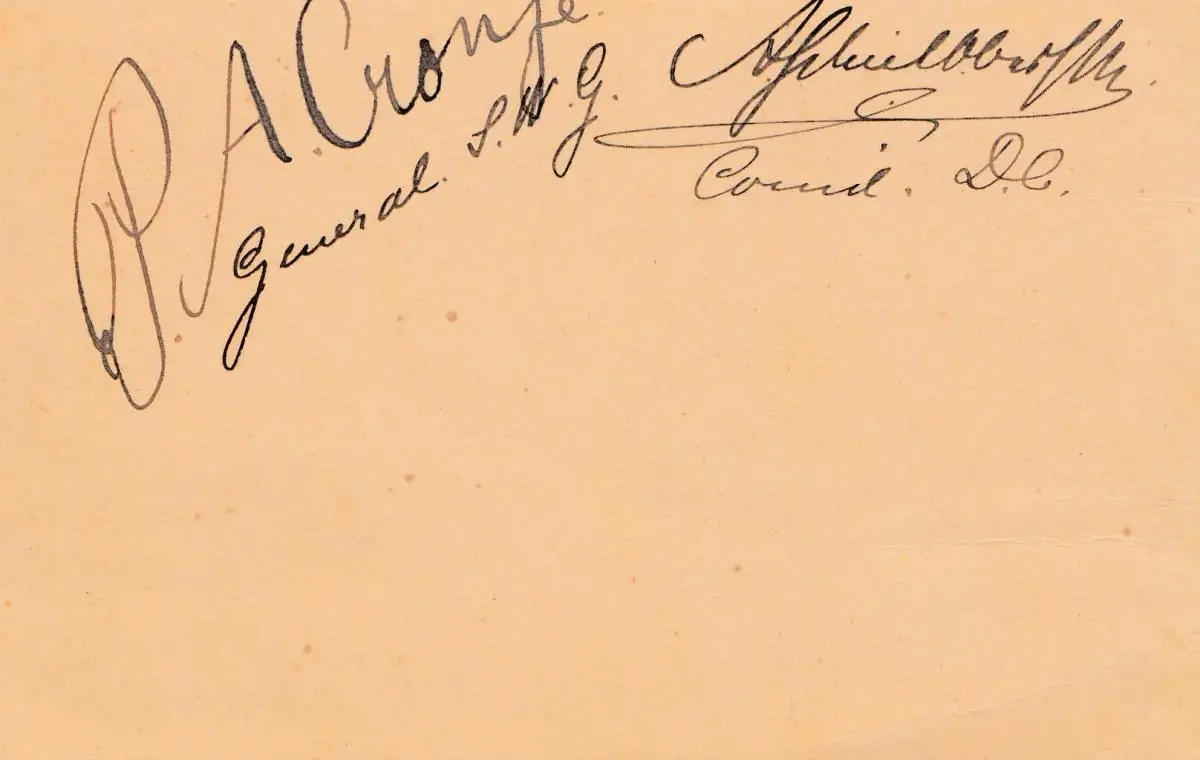 P. A. Cronje.
General. S. W. G.
A Schiel
Comd. D.C.